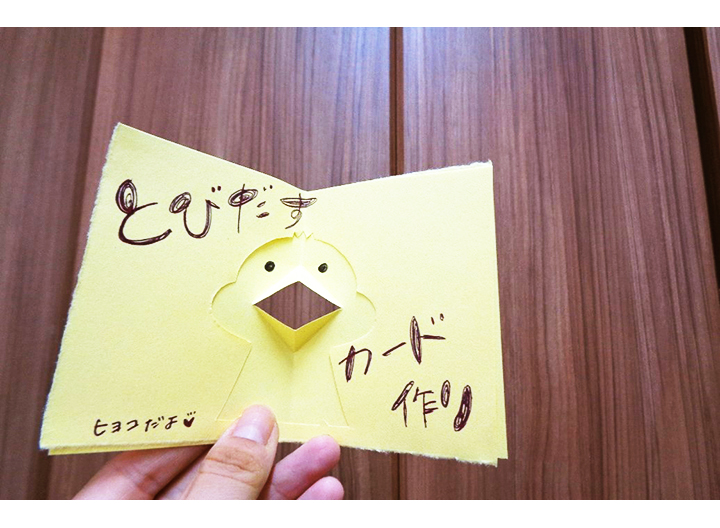 とびだす
カード
作り
ヒヨコだよ♥